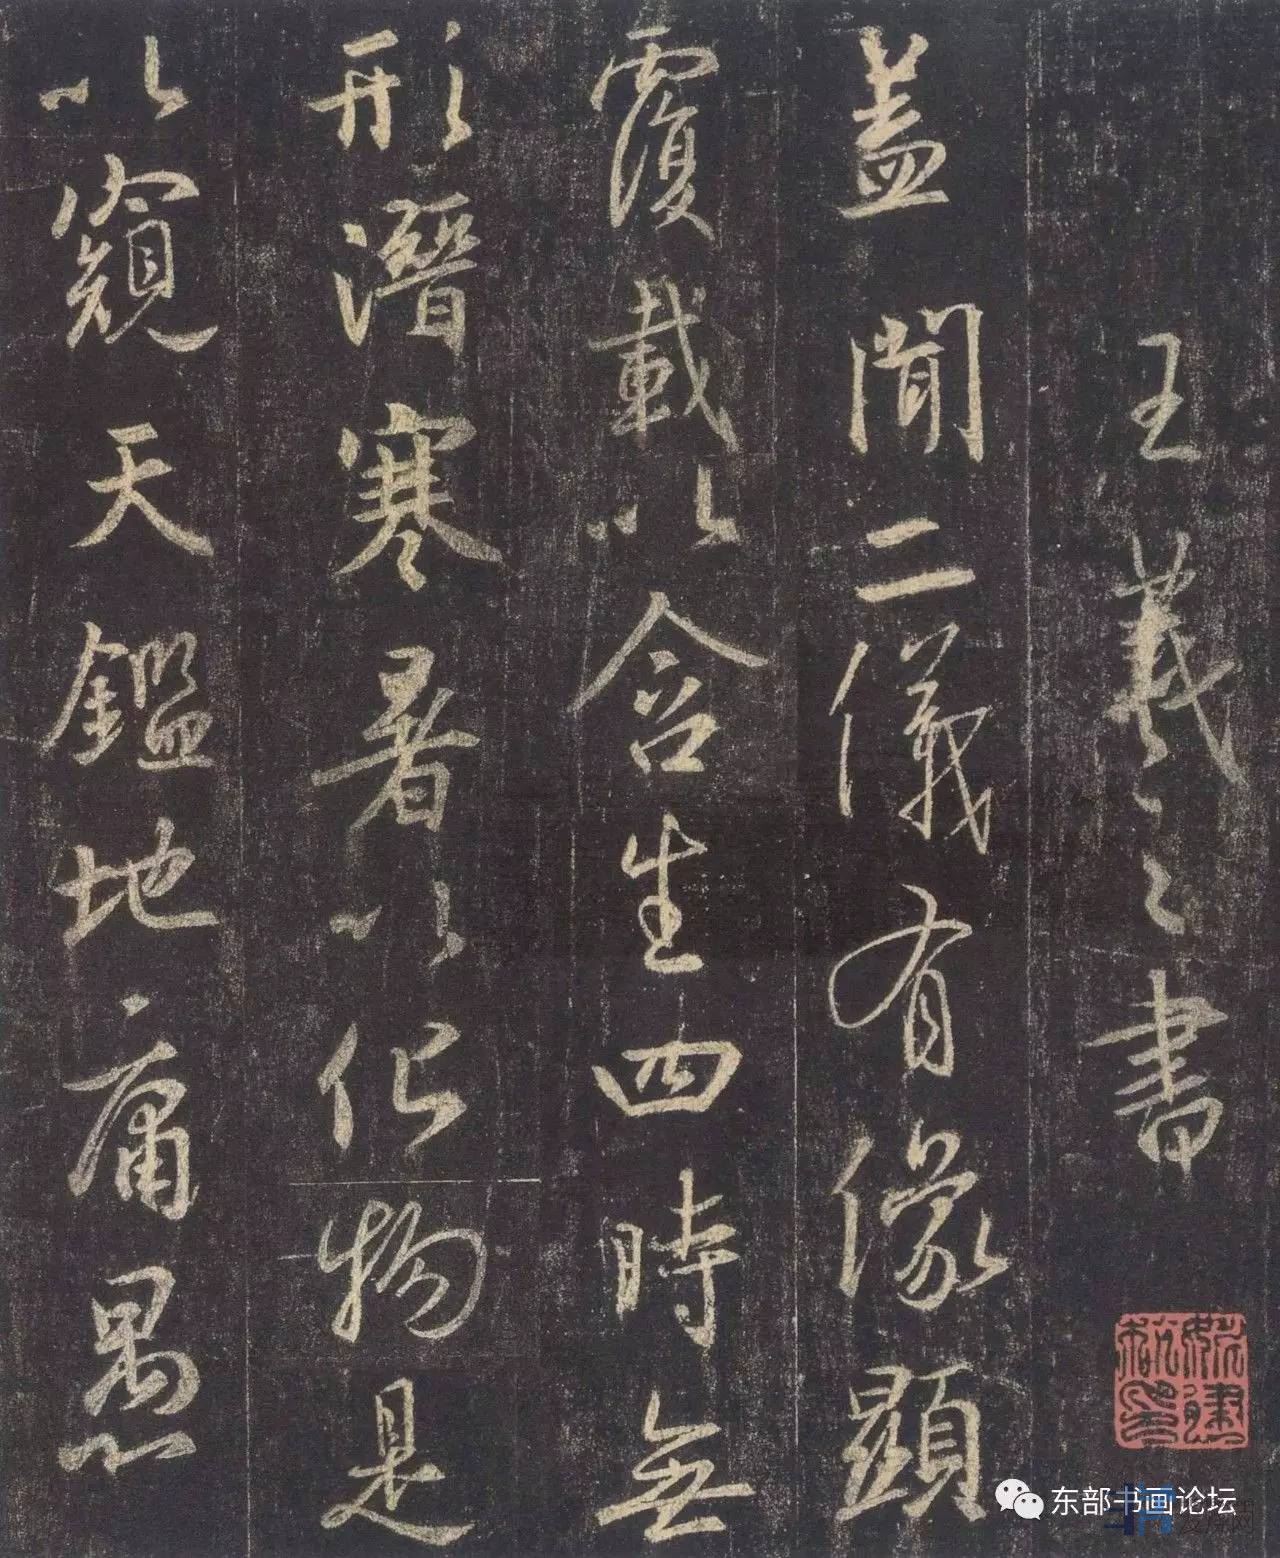 王羲之書
蓋聞二儀有像顯
覆載以含生四時無
形潛寒暑以化物是
以窺天鑑地庸愚
东部书画论坛